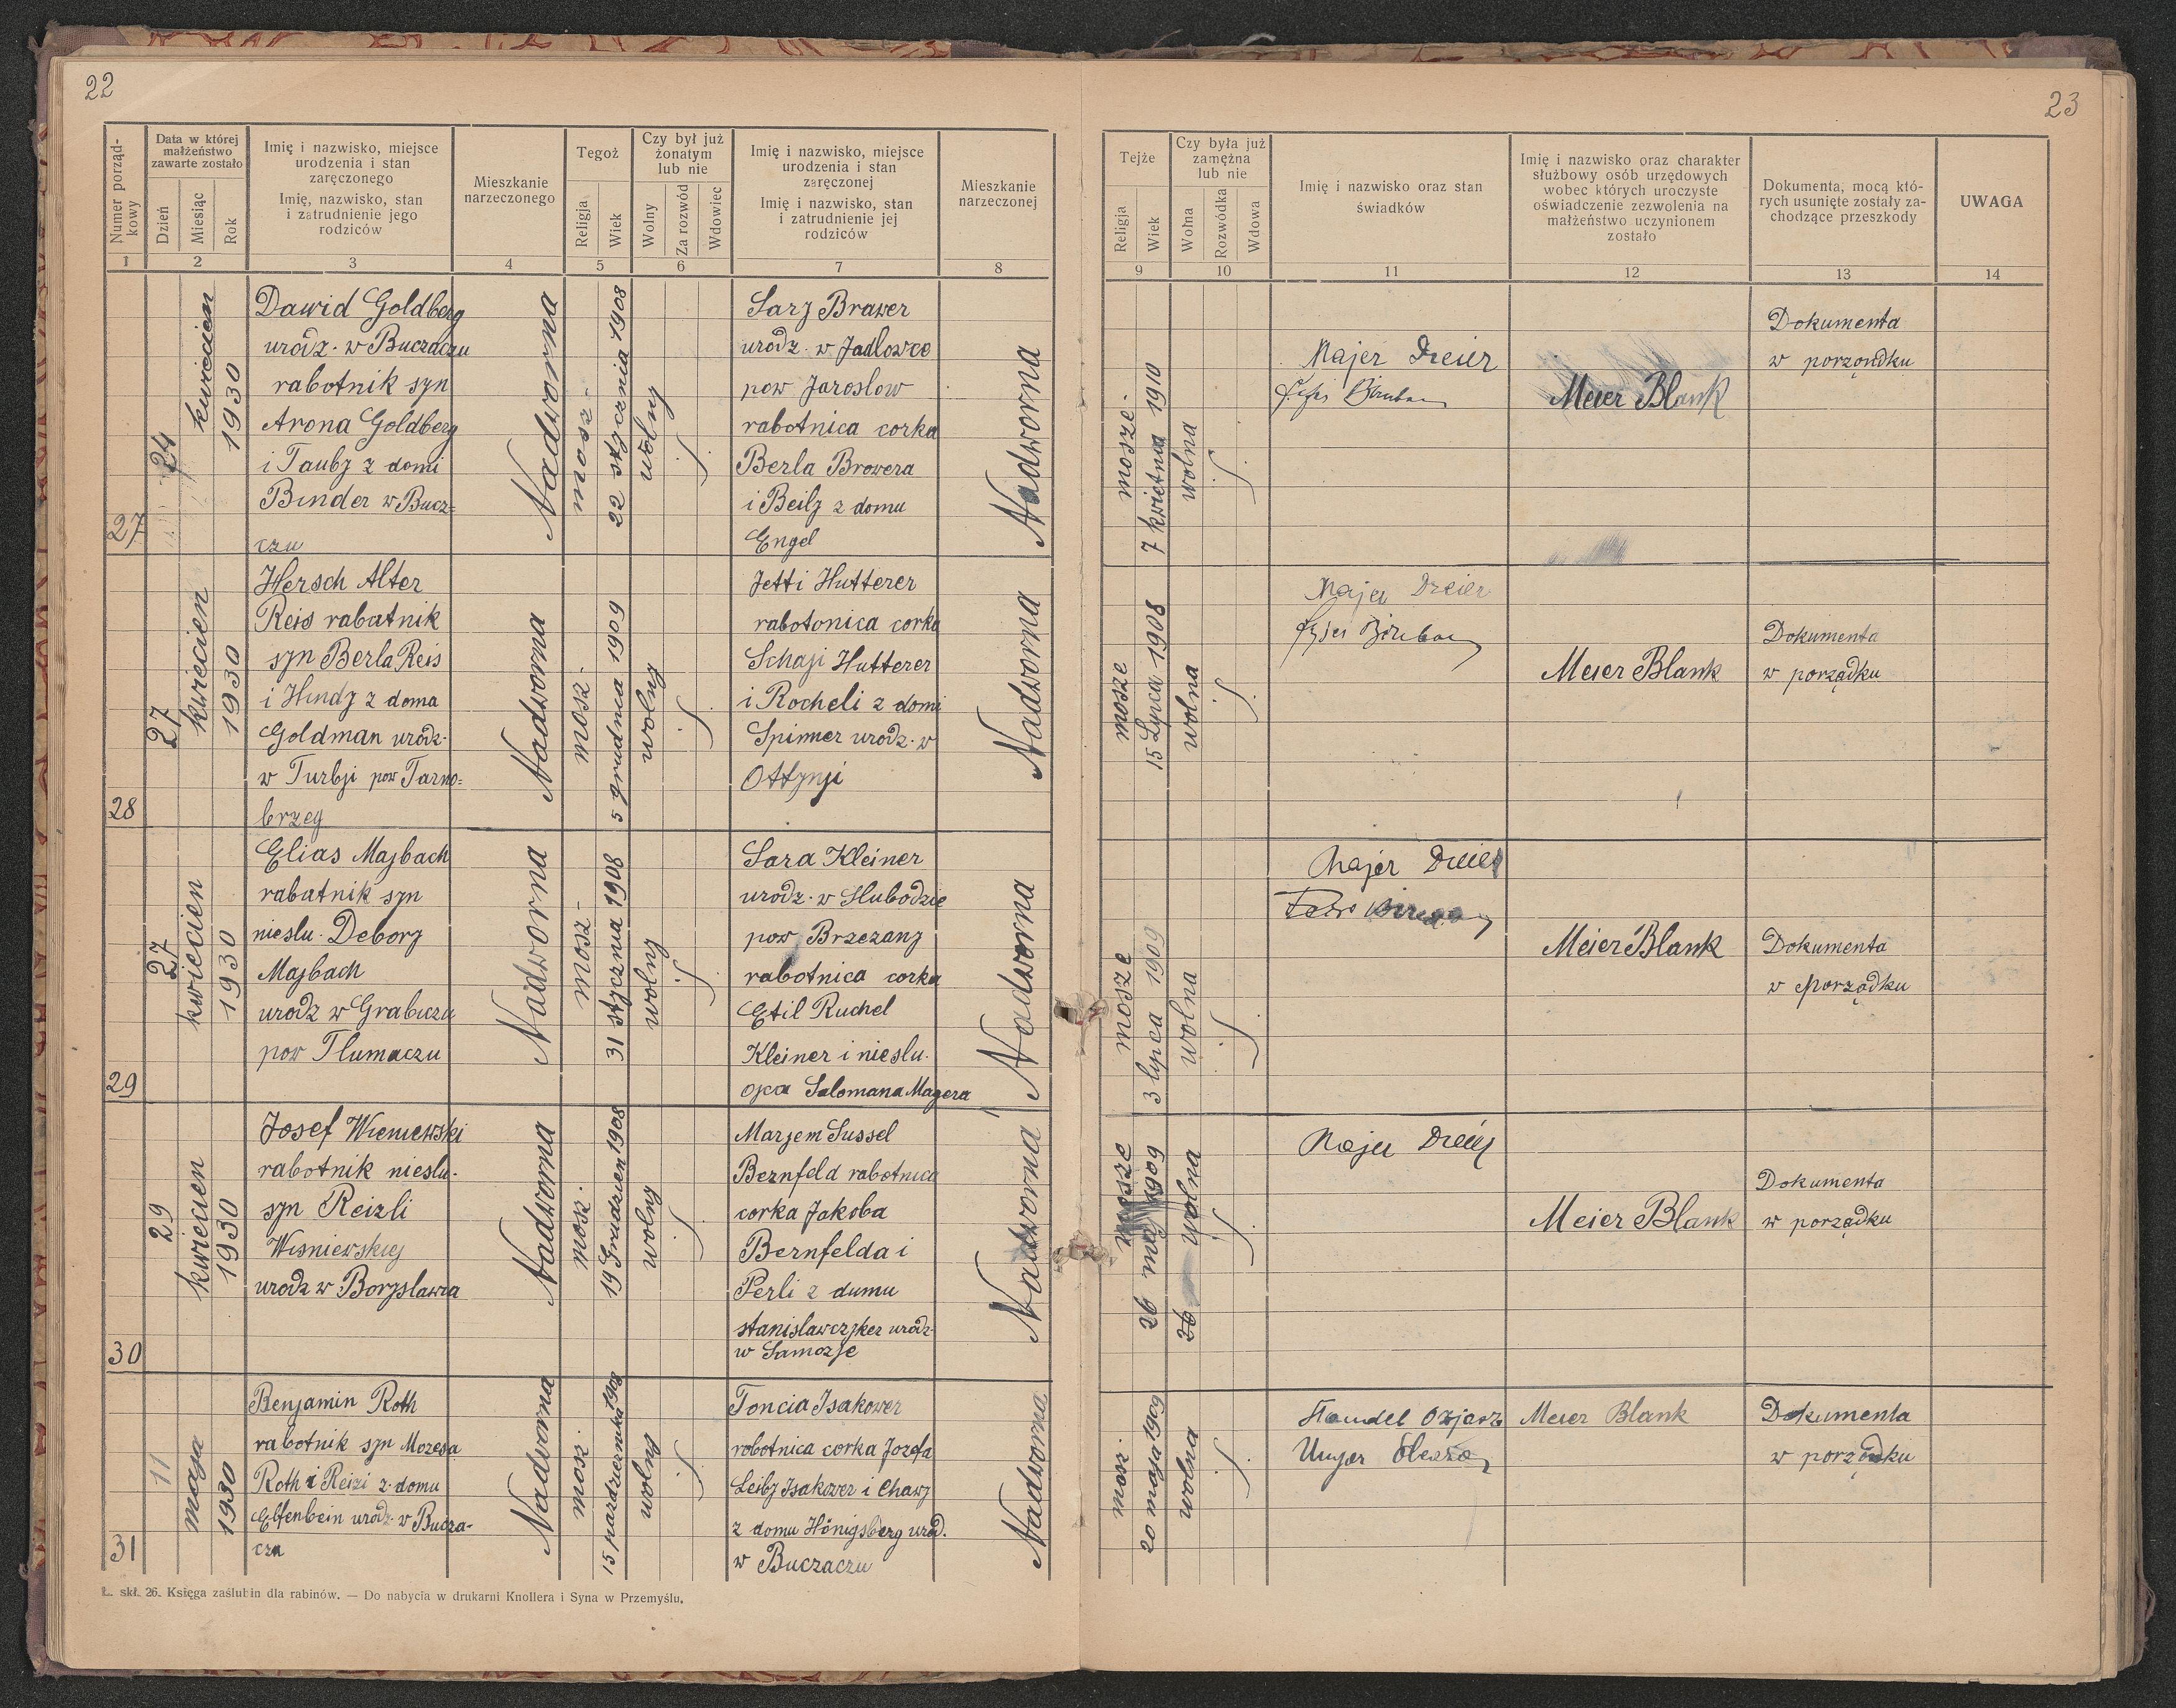 22
23
Numer porząd-
kowy
Data w której
małżeństwo
zawarte zostało
Dzień
Miesiąc
Rok
Imię i nazwisko, miejsce
urodzenia i stan
zaręczonego
Imię, nazwisko, stan
i zatrudnienie jego
rodziców
Mieszkanie
narzeczonego
Tegoż
Religja
Wiek
Czy był już
żonatym
lub nie
Wolny
Za rozwód
Wdowiec
Imię i nazwisko, miejsce
urodzenia i stan
zaręczonej
Imię i nazwisko, stan
i zatrudnienie jej
rodziców
Mieszkanie
narzeczonej
Tejże
Religja
Wiek
Czy była już
zamężna
lub nie
Wolna
Rozwódka
Wdowa
Imię i nazwisko oraz stan
świadków
Imię i nazwisko oraz charakter
służbowy osób urzędowych
wobec których uroczyste
oświadczenie zezwolenia na
małżeństwo uczynionem
zostało
Dokumenta, mocą któ-
rych usunięte zostały za-
chodzące przeszkody
UWAGA
1 2 3 4 5 6 7 8 9 10 11 12 13 14
27
24
kwiecien
1930
Dawid Goldberg
urodz. w Buczaczu
rabotnik syn
Arona Goldberg
i Tauby z domi
Binder w Bucz=
czu
Nadworna
mosz-
22 stycznia 1908
wolny
Sary Brawer
urodz. w Jadlowce
pow Jaroslow
rabotnica corka
Berla Browera
i Beily z domu
Engel
Nadworna
mosze-
7 kwietna 1910
wolna
Majer Dreier
Meier Blank
Dokumenta
w porzondku
28
27
kwiecien
1930
Hersch Alter
Reis rabatnik
syn Berla Reis
i Hindy z doma
Goldman urodz.
w Turbji pow Tarno=
brzeg
Nadworna
mosz.
5 grudnia 1909
wolny
Jetti Hutterer
rabotonica corka
Schaji Hutterer
i Rocheli z domi
Spinner urodz. w
Ottynji
Nadworna
mosze
15 Lyna 1908
wolna
Majer Dreier
Meier Blank
Dokumenta
w porządku
29
27
kwiecien
1930
Elias Majbach
rabatnik syn
nieslu. Debory
Majbach
urodz w Grabiczu
pow Tlumaczu
Nadworna
mosz-
31 stycznia 1908
wolny
Sara Kleiner
urodz. w Slubodzie
pow Brzezany
rabotnica corka
Etil Ruchel
Kleiner i nieslu.
ojca Salomana Magera
Nadworna
mosze
3 lypca 1909
wolna
Majer Dreier
Meier Blank
Dokumenta
w porządku
30
29
kwiecien
1930
Josef Wieniewski
rabotnik nieslu.
syn Reizli
Wisniewskiej
urodz w Boryslawia
Nadworna
mosz.
19 Grudzien 1908
wolny
Marjem Sussel
Bernfeld rabotnica
corka Jakoba
Bernfelda i
Perli z dumu
stanislawczyker urodz-
w Samozje
Nadworna
mosze
26 maj 1909
wolna
26
Majer Dreier
Meier Blank
Dokumenta
w porządku
31
11
maja
1930
Benjamin Roth
rabotnik syn Mozesa
Roth i Reizi z domu
Elfenbein urodz. w Bucza-
czu
Nadworna
mosz.
15 pazdziernika 1908
wolny
Toncia Isakower
robotnica corka Jozefa
Leiby Isakower i Chawy
z domu Hönigsberg urod.
w Buczaczu
Nadworna
mosz.
20 maja 1909
wolna
Unger
Meier Blank
Dokumenta
w porządku
Ł. skł. 26. Księga zaślubin dla rabinów. — Do nabycia w drukarni Knollera i Syna w Przemyślu.